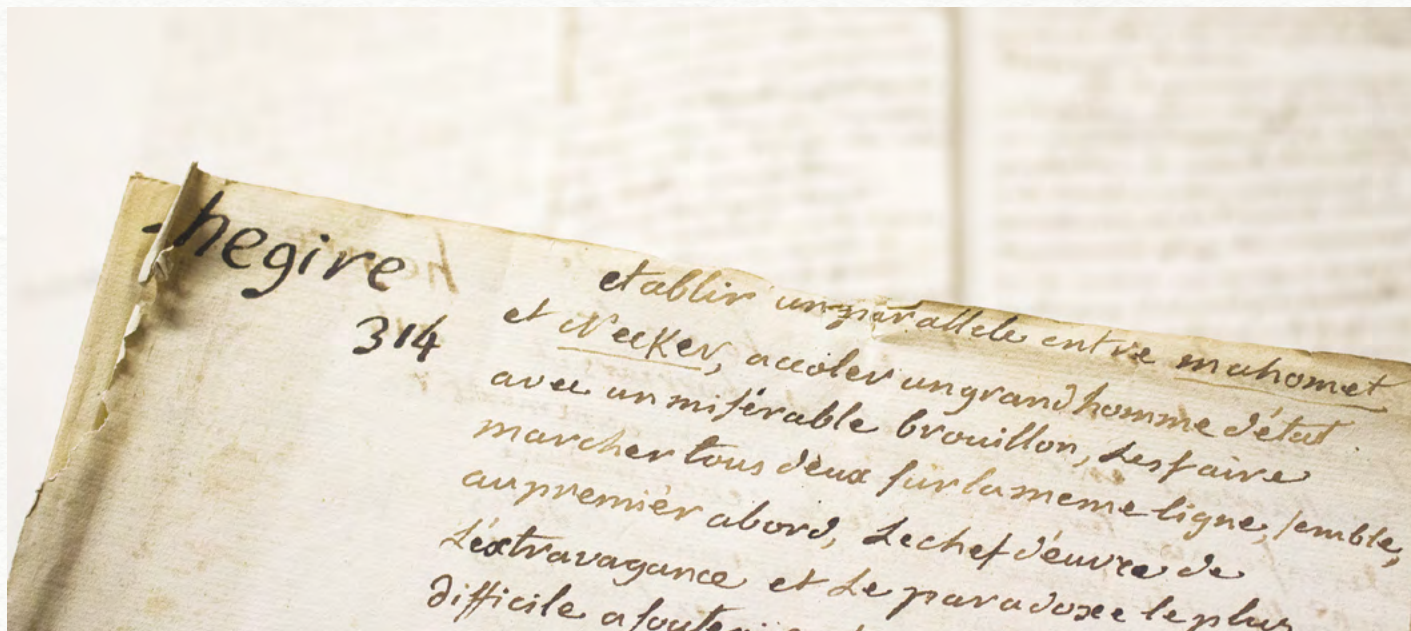 hegire
314
etablir un parallele entre mahomet
et Necker, accoler un grand homme d'état
avec un misérable brouillon, Les faire
marcher tous deux sur la meme ligne, semble,
au premier abord, Le chef d'euvre de
L'extravagance et Le paradoxe le plus
difficile a soutenir